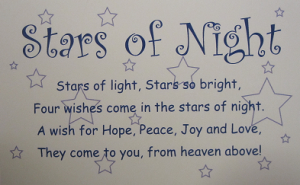 Stars of Night
Stars of light, Stars so bright,
Four wishes come in the stars of night.
A wish for Hope, Peace, Joy and Love,
They come to you, from heaven above!